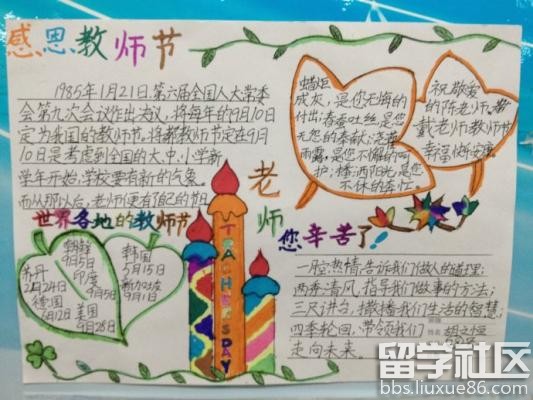 感恩教师节
1985年1月21日,第六届全国人大常委
会第九次会议作出决议,将每年的9月10日
定为我国的教师节。将教师节定在9月
10日是考虑到全国的大、中、小学新
学年开始,学校要有新的气象。
而从那以后,老师便有了自己的节日
蜡炬
成灰,是您无悔的
付出;春蚕吐丝,是您
无怨的奉献;
雨露,是您不懈的呵
护;播洒阳光,是您
不休的奉
祝敬爱
的陈老师、戴
戴老师教师节
幸福快乐
世界各地的教师节
朝鲜
9月5日
印度
9月5日
苏丹
2月24日
德国
6月12日
美国
9月28日
韩国
5月15日
新加坡
9月1日
TEACHER'S DAY
老师
您辛苦了!
一腔热情,告诉我们做人的道理;
两季清风,指导我们做事的方法;
三尺讲台,撒播我们生活的智慧;
四季轮回,带领我们
走向未来。
留学社区
bbs.liuxue86.com